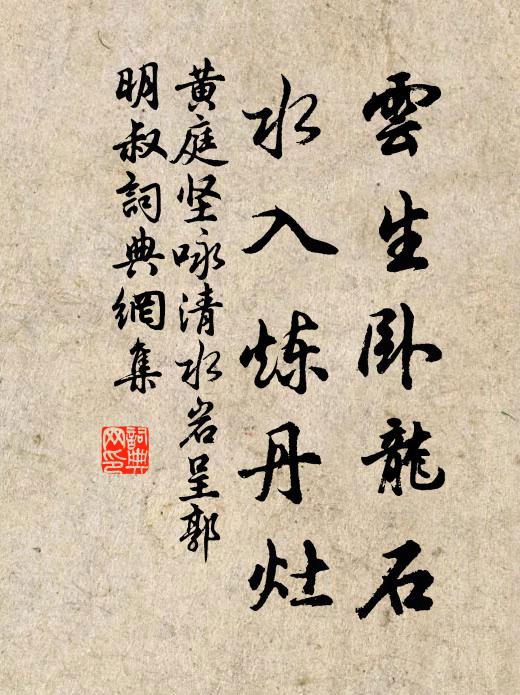 雲生卧龍石
水入炼丹灶
黄庭坚咏清水岩呈郭
明叔詞典網集
詞典
网印